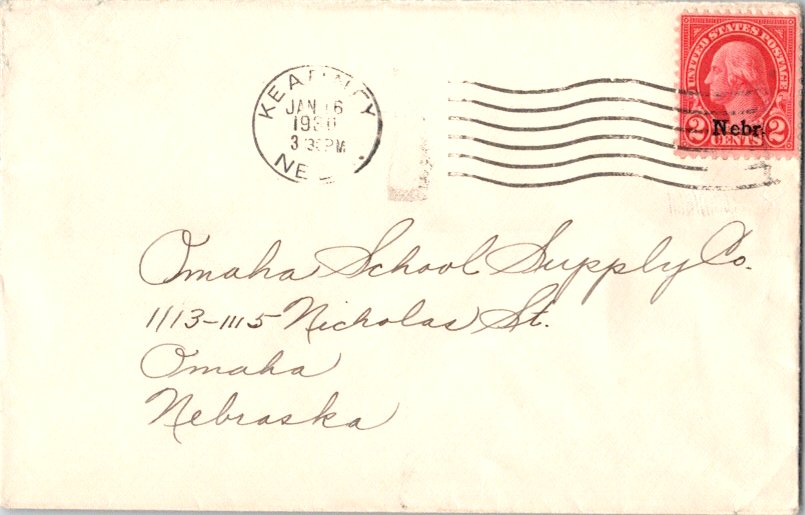 UNITED STATES POSTAGE
2 Nebr. 2
CENTS
KEARNEY
JAN 16
1930
3 30 PM
Omaha School Supply Co.
1113-1115 Nicholas St.
Omaha
Nebraska